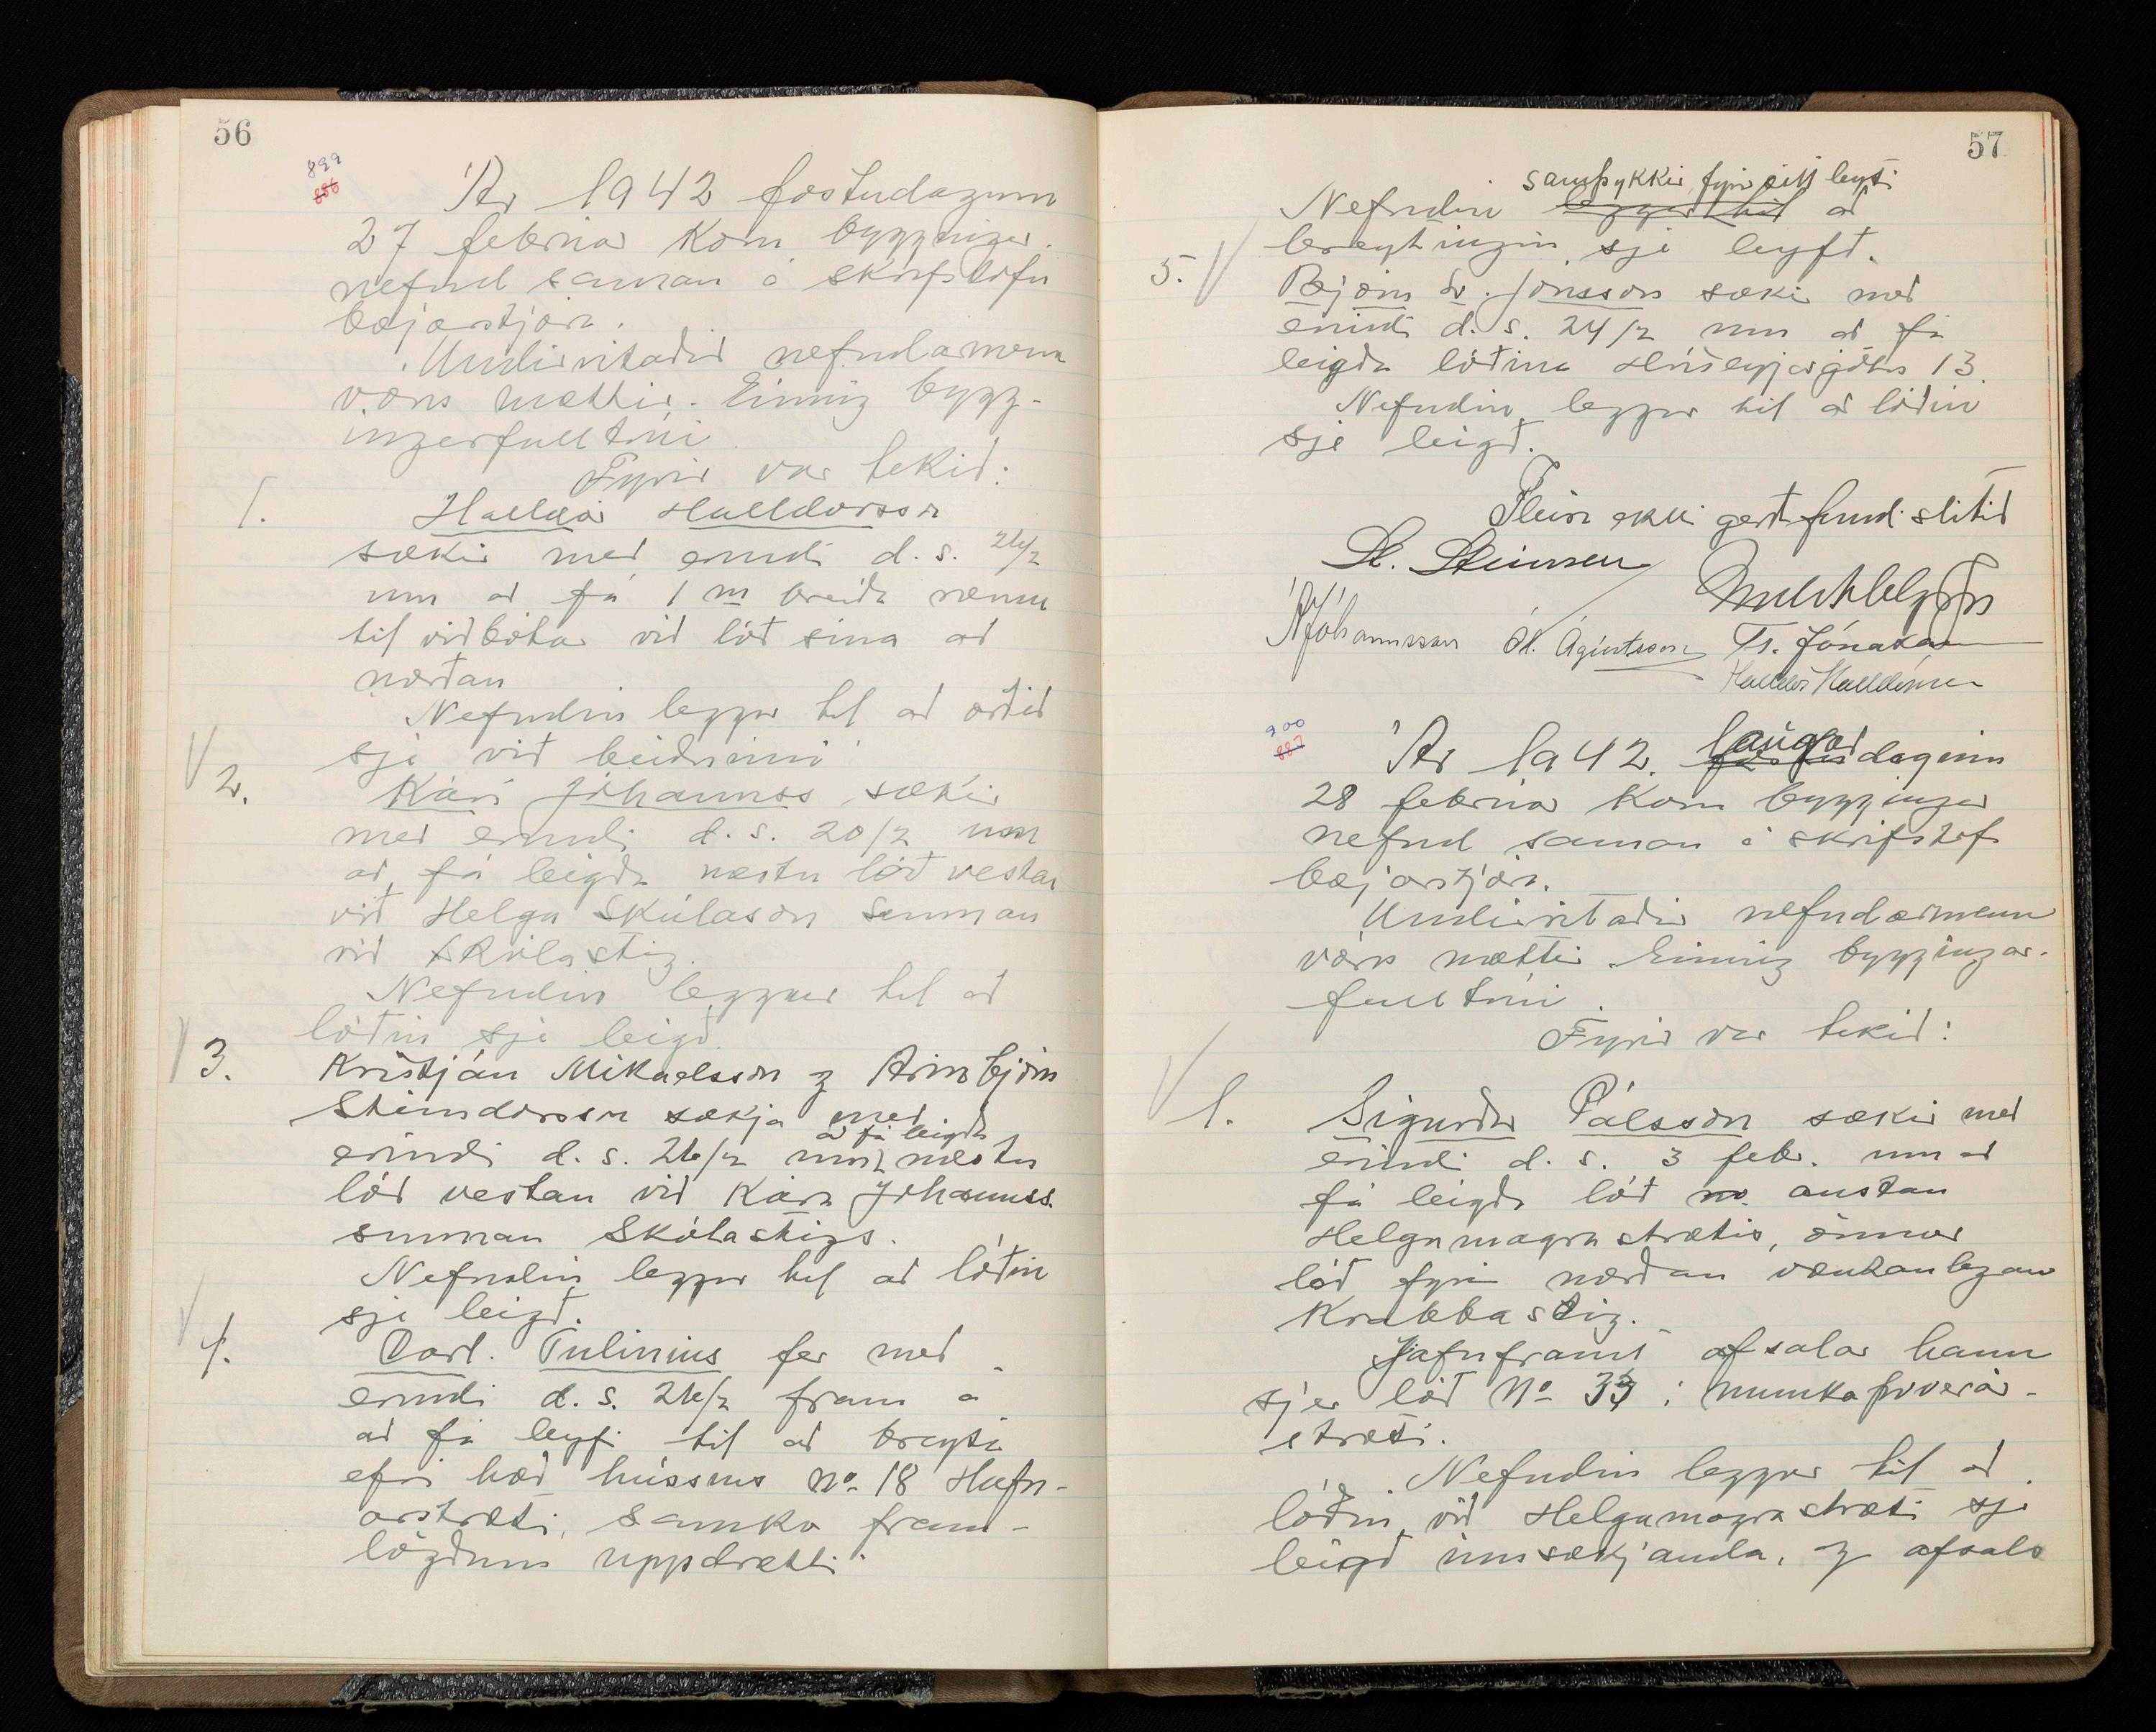 56
899
886
Ár 1942 föstudaginn
27 febrúar kom bygginga-
nefnd saman á skrifstofu
bæjarstjóra.
Undirritaðir nefndarmenn
voru mættir. Einnig bygg-
ingarfulltrúi.
Fyrir var tekið:
1.
Halldór Halldórsson
sækir með erindi d. s. 26/2
um að fá 1 m breiða ræmu
til viðbótar við lóð sína að
norðan
Nefndin leggur til að orðið
sje við beiðninni
2.
Kári Jóhannss sækir
með erindi d. s. 20/2 um
að fá leigða næstu lóð vestan
við Helga Skúlason sunnan
við Skólastig.
Nefndin leggur til að
lóðin sje leigð.
3.
Kristján Mikaelsson og Arinbjörn
Steindórsson sækja með
að fá leigða
erindi d. s. 26/2 um næstu
lóð vestan við Kára Jóhannss.
sunnan Skólastigs.
Nefndin leggur til að lóðin
sje leigð.
4.
Carl. Tulinius fer með
erindi d. s. 26/2 fram á
að fá leyfi til að breyta
efri hæð hússins No 18 Hafn-
arstræti, samkv fram-
lögðum uppdrætti.
57
samþykkir fyrir sitt leyti
Nefndin leggur til að
breytingin sje leyft.
5.
Björn Jónsson sækir með
erindi d. s. 24/2 um að fá
leigða lóðina Hríseyjargötu 13.
Nefndin leggur til að lóðin
sje leigð.
Fleira ekki gert fundi slitið
St. Steinsen
Jóhannsson Ól. Ágústsson Tr. Jónatansson
Halldór Halldórsson
900
887
Ár 1942. laugardaginn
28 febrúar kom bygginga
nefnd saman á skrifstof
bæjarstjóra.
Undirritaðir nefndarmenn
voru mættir. Einnig byggingar-
fulltrúi.
Fyrir var tekið:
1.
Sigurður Pálsson sækir með
erindi d. s. 3 febr. um að
fá leigða lóð austan
Helgamagrastrætis, önnur
lóð fyrir norðan væntanlegan
Krabbastíg.
Jafnframt afsalar hann
sjer lóð No 33 í Munkaþverár-
stræti.
Nefndin leggur til að
lóðin við Helgamagrastræti sje
leigð umsækjanda, og afsals